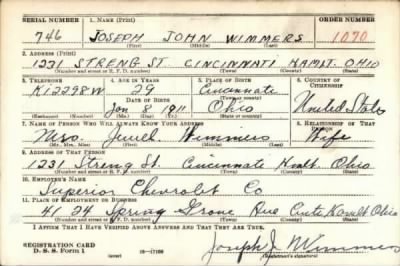 SERIAL NUMBER 1. NAME (Print) ORDER NUMBER
746 JOSEPH JOHN WIMMERS 1070
(First) (Middle) (Last)
2. ADDRESS (Print)
1231 STRENG ST. CINCINNATI HAMLT. OHIO
(Number and street or R. F. D. number) (Town) (County) (State)
3. TELEPHONE 4. AGE IN YEARS 5. PLACE OF BIRTH 6. COUNTRY OF CITIZENSHIP
Ki2298W 29 Cincinnati
DATE OF BIRTH (Town or county)
Jan 8 1911 Ohio United States
(Exchange) (Number) (Mo.) (Day) (Yr.) (State or country)
7. NAME OF PERSON WHO WILL ALWAYS KNOW YOUR ADDRESS 8. RELATIONSHIP OF THAT PERSON
Mrs. Jewell Wimmers Wife
(Mr., Mrs., Miss) (First) (Middle) (Last)
9. ADDRESS OF THAT PERSON
1231 Streng St. Cincinnati Hamlt. Ohio
(Number and street or R. F. D. number) (Town) (County) (State)
10. EMPLOYER'S NAME
Superior Chevrolet Co
11. PLACE OF EMPLOYMENT OR BUSINESS
4124 Spring Grove Ave Ohio
(Number and street or R. F. D. number) (Town) (County) (State)
I AFFIRM THAT I HAVE VERIFIED ABOVE ANSWERS AND THAT THEY ARE TRUE.
REGISTRATION CARD
D. S. S. Form 1 (over) Joseph J Wimmers
(Registrant's signature)